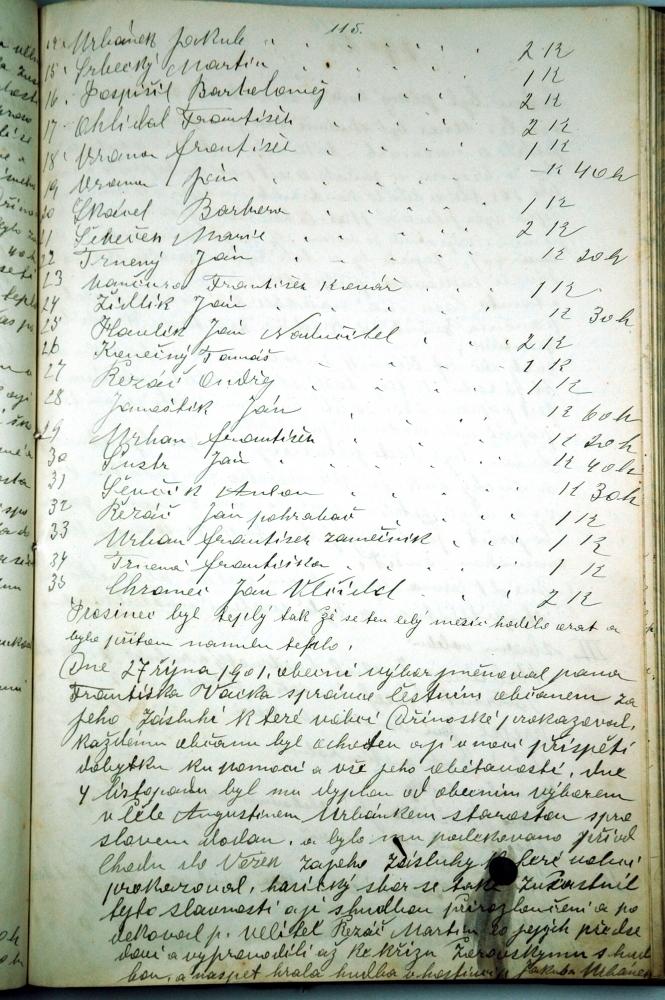 115.
14. Urbánek Jakub 2 K
15. Srbecký Martin 1 K
16. Pospíšil Bartholoměj 2 K
17 Ohlídal František 2 K
18 Vrana František 1 K
19 Vrana Ján – K 40 h
20 Skával Barbora 1 K
21 Marie 2 K
22 Trnený Ján K 20 h
23 Vančura František kovář 1 K
24 Židlík Ján K 30 h
25 Havlík Ján Nadučitel 2 K
26 Konečný Tomáš 1 K
27 Řezáč Ondřej 1 K
28 Janoštík Ján K 60 h
29 Urban František K 20 h
30 Šustr Ján K 40 h
31 Ševčík Anton K 30 h
32 Řezáč Ján pohrabač 1 K
33 Urban František zamečník 1 K
34 Trnená Františka 1 K
35 Chramec Ján Klšídal 2 K
Prosinec byl teplý tak že se ten celý mesíc hodilo orat a
bylo přitom namnoze teplo.
Dne 27 října 1901. obecní výbor jmenoval pana
Františka Vacka správce čestním občanem za
jeho zásluhi které vobci Dřinoské prokazoval,
každému občanu byl ochoten aji v noci přispěti
dobytku ku pomoci a vše jeho obětavostí, dne
4 listopadu byl mu dyplom od obecním výborem
v čele Augustinem Urbánkem starostou spro
slovem dodan, a bylo mu poděkovano při od
chodu do Vezek za jeho zásluhy které vobci
prokazoval, hasičský sbor se také zučastnil
tejto slavnosti aji s hudbou při rozloučení a po
děkoval p. velitel Řezáč Martin za jejich předse
dou a vyprovodili až ke křížu Žerovskymu s hud
bou, a naspet hrala hudba v hostinci p. Jakuba Urbanek